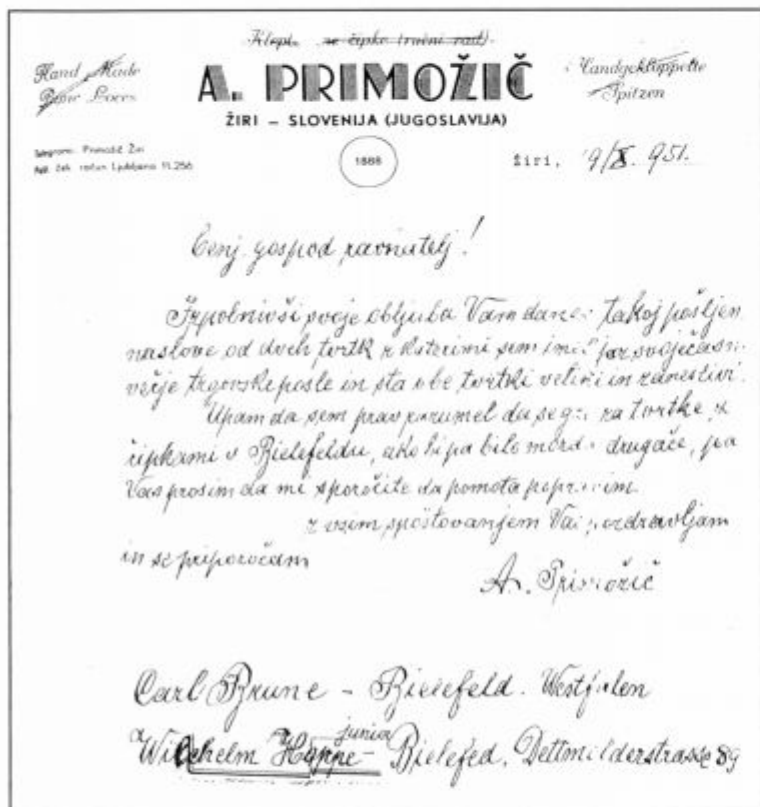 Klepl. se čipke (ročni rad).
Hand Made
Bone Laces
A. PRIMOŽIČ
Handgeklöppelte
Spitzen
ŽIRI – SLOVENIJA (JUGOSLAVIJA)
Telegrami: Primožič Žiri
Ček. račun Ljubljana 11.256
1888
Žiri, 19/X. 951.
Cenj. gospod ravnatelj!
Izpolnivši svoje obljube Vam dane takoj pošljem
naslove od dveh tvrtk s katerimi sem imel jaz svoječasno
večje trgovske posle in sta obe tvrtki veliki in zanesljivi.
Upam da sem prav razumel da se gre za tvrtke s
čipkami v Bielefeldu, ako bi pa bilo morda drugače, pa
Vas prosim da mi sporočite da pomoto popravim
z vsim spoštovanjem Vas pozdravljam
in se priporočam
A. Primožič
Carl Brune – Bielefeld. Westfalen
Wilhelm Hoppe junior – Bielefed, Dettmolderstrasse 89